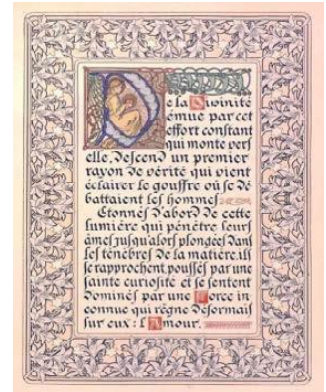 De la Divinité
émue par cet
effort constant
qui monte vers
elle, Descend un premier
rayon de vérité qui vient
éclairer le gouffre où se dé
battaient les hommes
Etonnés D'abord De cette
lumière qui pénètre leurs
âmes jusqu'alors plongées Dans
les ténèbres de la matière, ils
se rapprochent, poussés par une
sainte curiosité et se sentent
Dominés par une Force in
connue qui règne Désormais
sur eux : l'Amour.